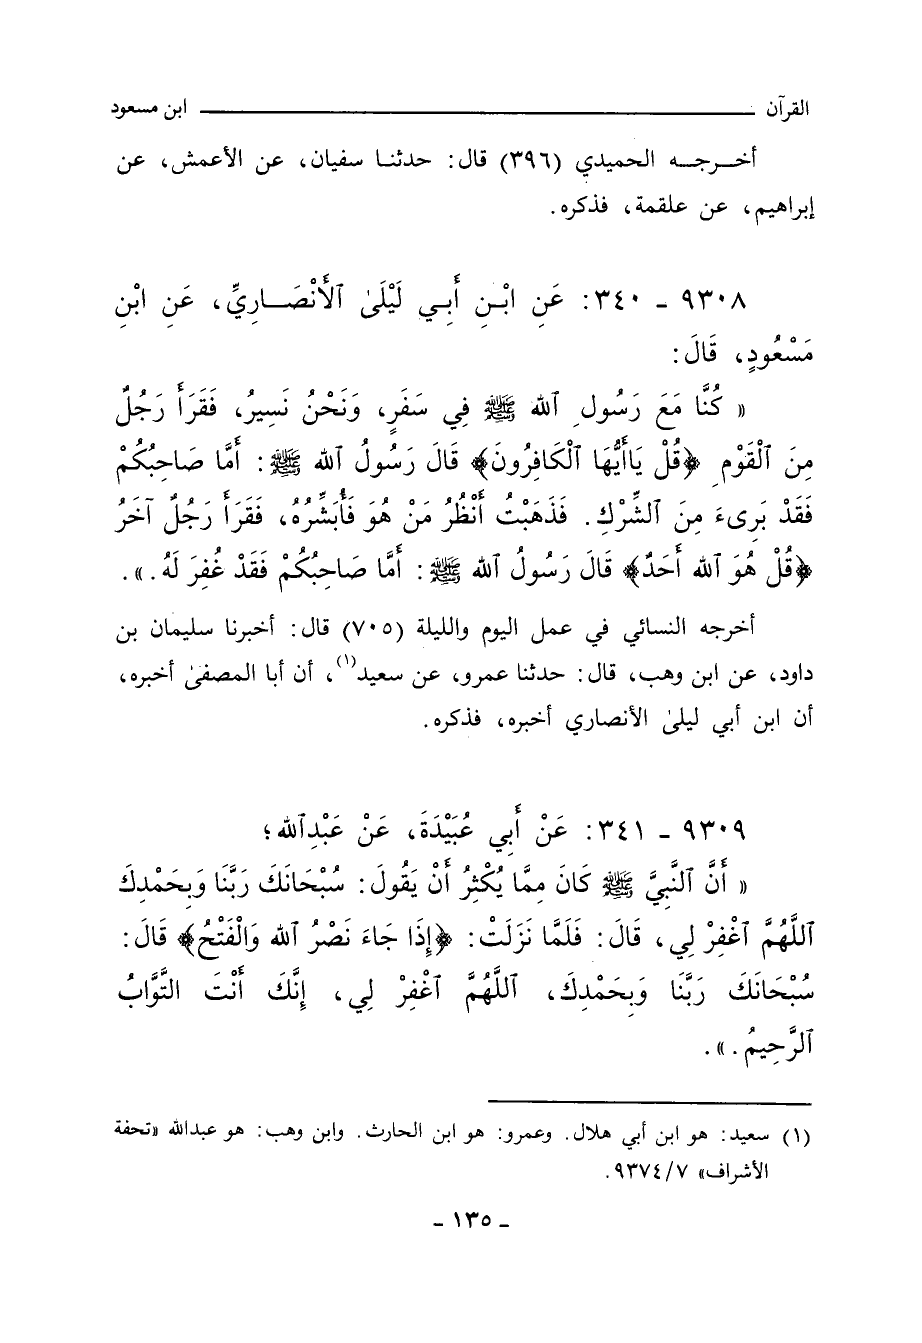 القرآن ــــــــــــــــــــــــــــــــ ابن مسعود
أخـــرجـــه الحميدي (٣٩٦) قال: حدثنـا سفيان، عن الأعمش، عن
إبراهيم، عن علقمة، فذكره.
٩٣٠٨ ـ ٣٤٠: عَنِ ابْـنِ أَبِـي لَيْلَىٰ ٱلأَنْصَــارِيِّ، عَنِ ابْنِ
مَسْعُودٍ، قَالَ:
« كُنَّا مَعَ رَسُولِ ٱلله ﷺ فِي سَفَرٍ، وَنَحْنُ نَسِيرُ، فَقَرَأَ رَجُلٌ
مِنَ ٱلْقَوْمِ ﴿قُلْ يَاأَيُّهَا ٱلْكَافِرُونَ﴾ قَالَ رَسُولُ ٱلله ﷺ: أَمَّا صَاحِبُكُمْ
فَقَدْ بَرِىءَ مِنَ ٱلشِّرْكِ. فَذَهَبْتُ أَنْظُرُ مَنْ هُوَ فَأُبَشِّرُهُ، فَقَرَأَ رَجُلٌ آخَرُ
﴿قُلْ هُوَ ٱلله أَحَدٌ﴾ قَالَ رَسُولُ ٱلله ﷺ: أَمَّا صَاحِبُكُمْ فَقَدْ غُفِرَ لَهُ.».
أخرجه النسائي في عمل اليوم والليلة (٧٠٥) قال: أخبرنا سليمان بن
داود، عن ابن وهب، قال: حدثنا عمرو، عن سعيد(١)، أن أبا المصفىٰ أخبره،
أن ابن أبي ليلىٰ الأنصاري أخبره، فذكره.
٩٣٠٩ ـ ٣٤١: عَنْ أَبِي عُبَيْدَةَ، عَنْ عَبْدِٱلله؛
« أَنَّ ٱلنَّبِيَّ ﷺ كَانَ مِمَّا يُكْثِرُ أَنْ يَقُولَ: سُبْحَانَكَ رَبَّنَا وَبِحَمْدِكَ
ٱللَّهُمَّ ٱغْفِرْ لِي، قَالَ: فَلَمَّا نَزَلَتْ: ﴿إِذَا جَاءَ نَصْرُ ٱلله وَالْفَتْحُ﴾ قَالَ:
سُبْحَانَكَ رَبَّنَا وَبِحَمْدِكَ، ٱللَّهُمَّ ٱغْفِرْ لِي، إِنَّكَ أَنْتَ التَّوَّابُ
ٱلرَّحِيمُ.».
(١) سعيد: هو ابن أبي هلال. وعمرو: هو ابن الحارث. وابن وهب: هو عبدالله «تحفة
الأشراف» ٩٣٧٤/٧.
ـ ١٣٥ ـ